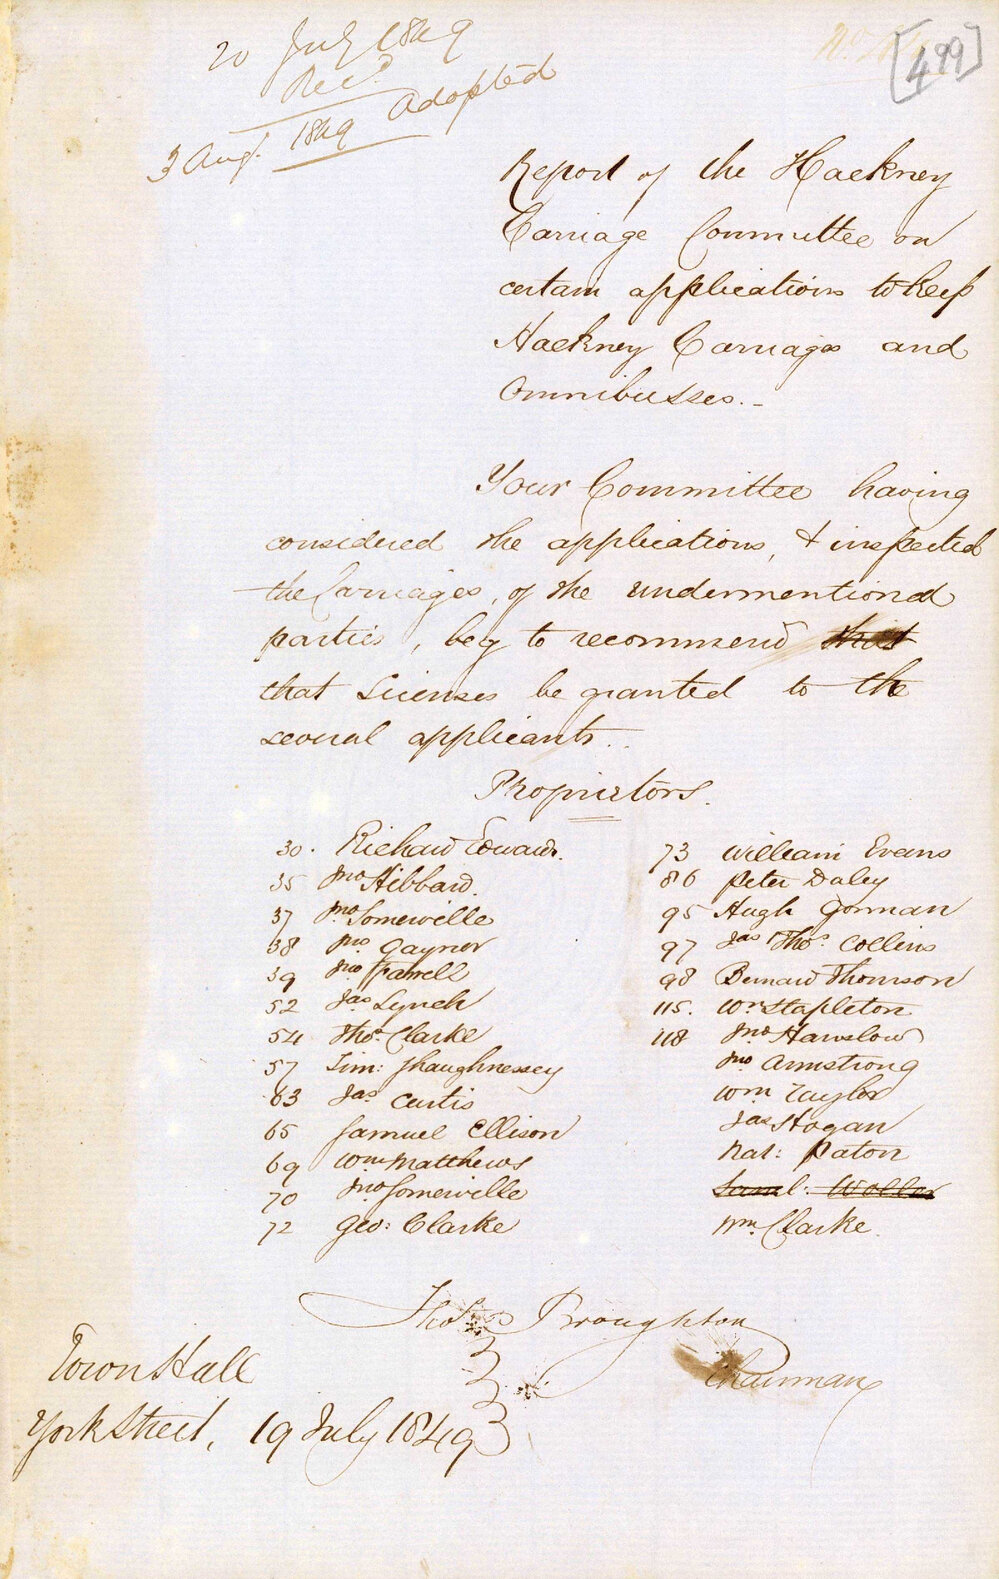 20 July 1849
Recd.
3 Augt. 1849 adopted
[499]
Report of the Hackney
Carriage Committee on
certain applications to keep
Hackney Carriages and
Omnibusses.-
Your Committee having
considered the applications, & inspected
the Carriages, of the undermentioned
parties, beg to recommend that
that Licenses be granted to the
several applicants.
Proprietors.
30. Richard Edwards.
35 Jno Hibbard.
37 Jno Somerville
38 Jno Gaynor
39 Jno Farrell
52 Jas Lynch
54 Thos. Clarke
57 Tim: Shaughnessey
63 Jas Curtis
65 Samuel Ellison
69 Wm Matthews
70 Jno Somerville
72 Geo: Clarke
73 William Evans
86 Peter Daley
95 Hugh Gorman
97 Jas Thos. Collins
98 Bernard Thomson
115. Wm Stapleton
118 Jno Hanslow
Jno Armstrong
Wm Taylor
Jas Hogan
Nat: Paton
Saml.
Wm. Clarke.
Thos Broughton
Chairman
Town Hall
York Street, 19 July 1849